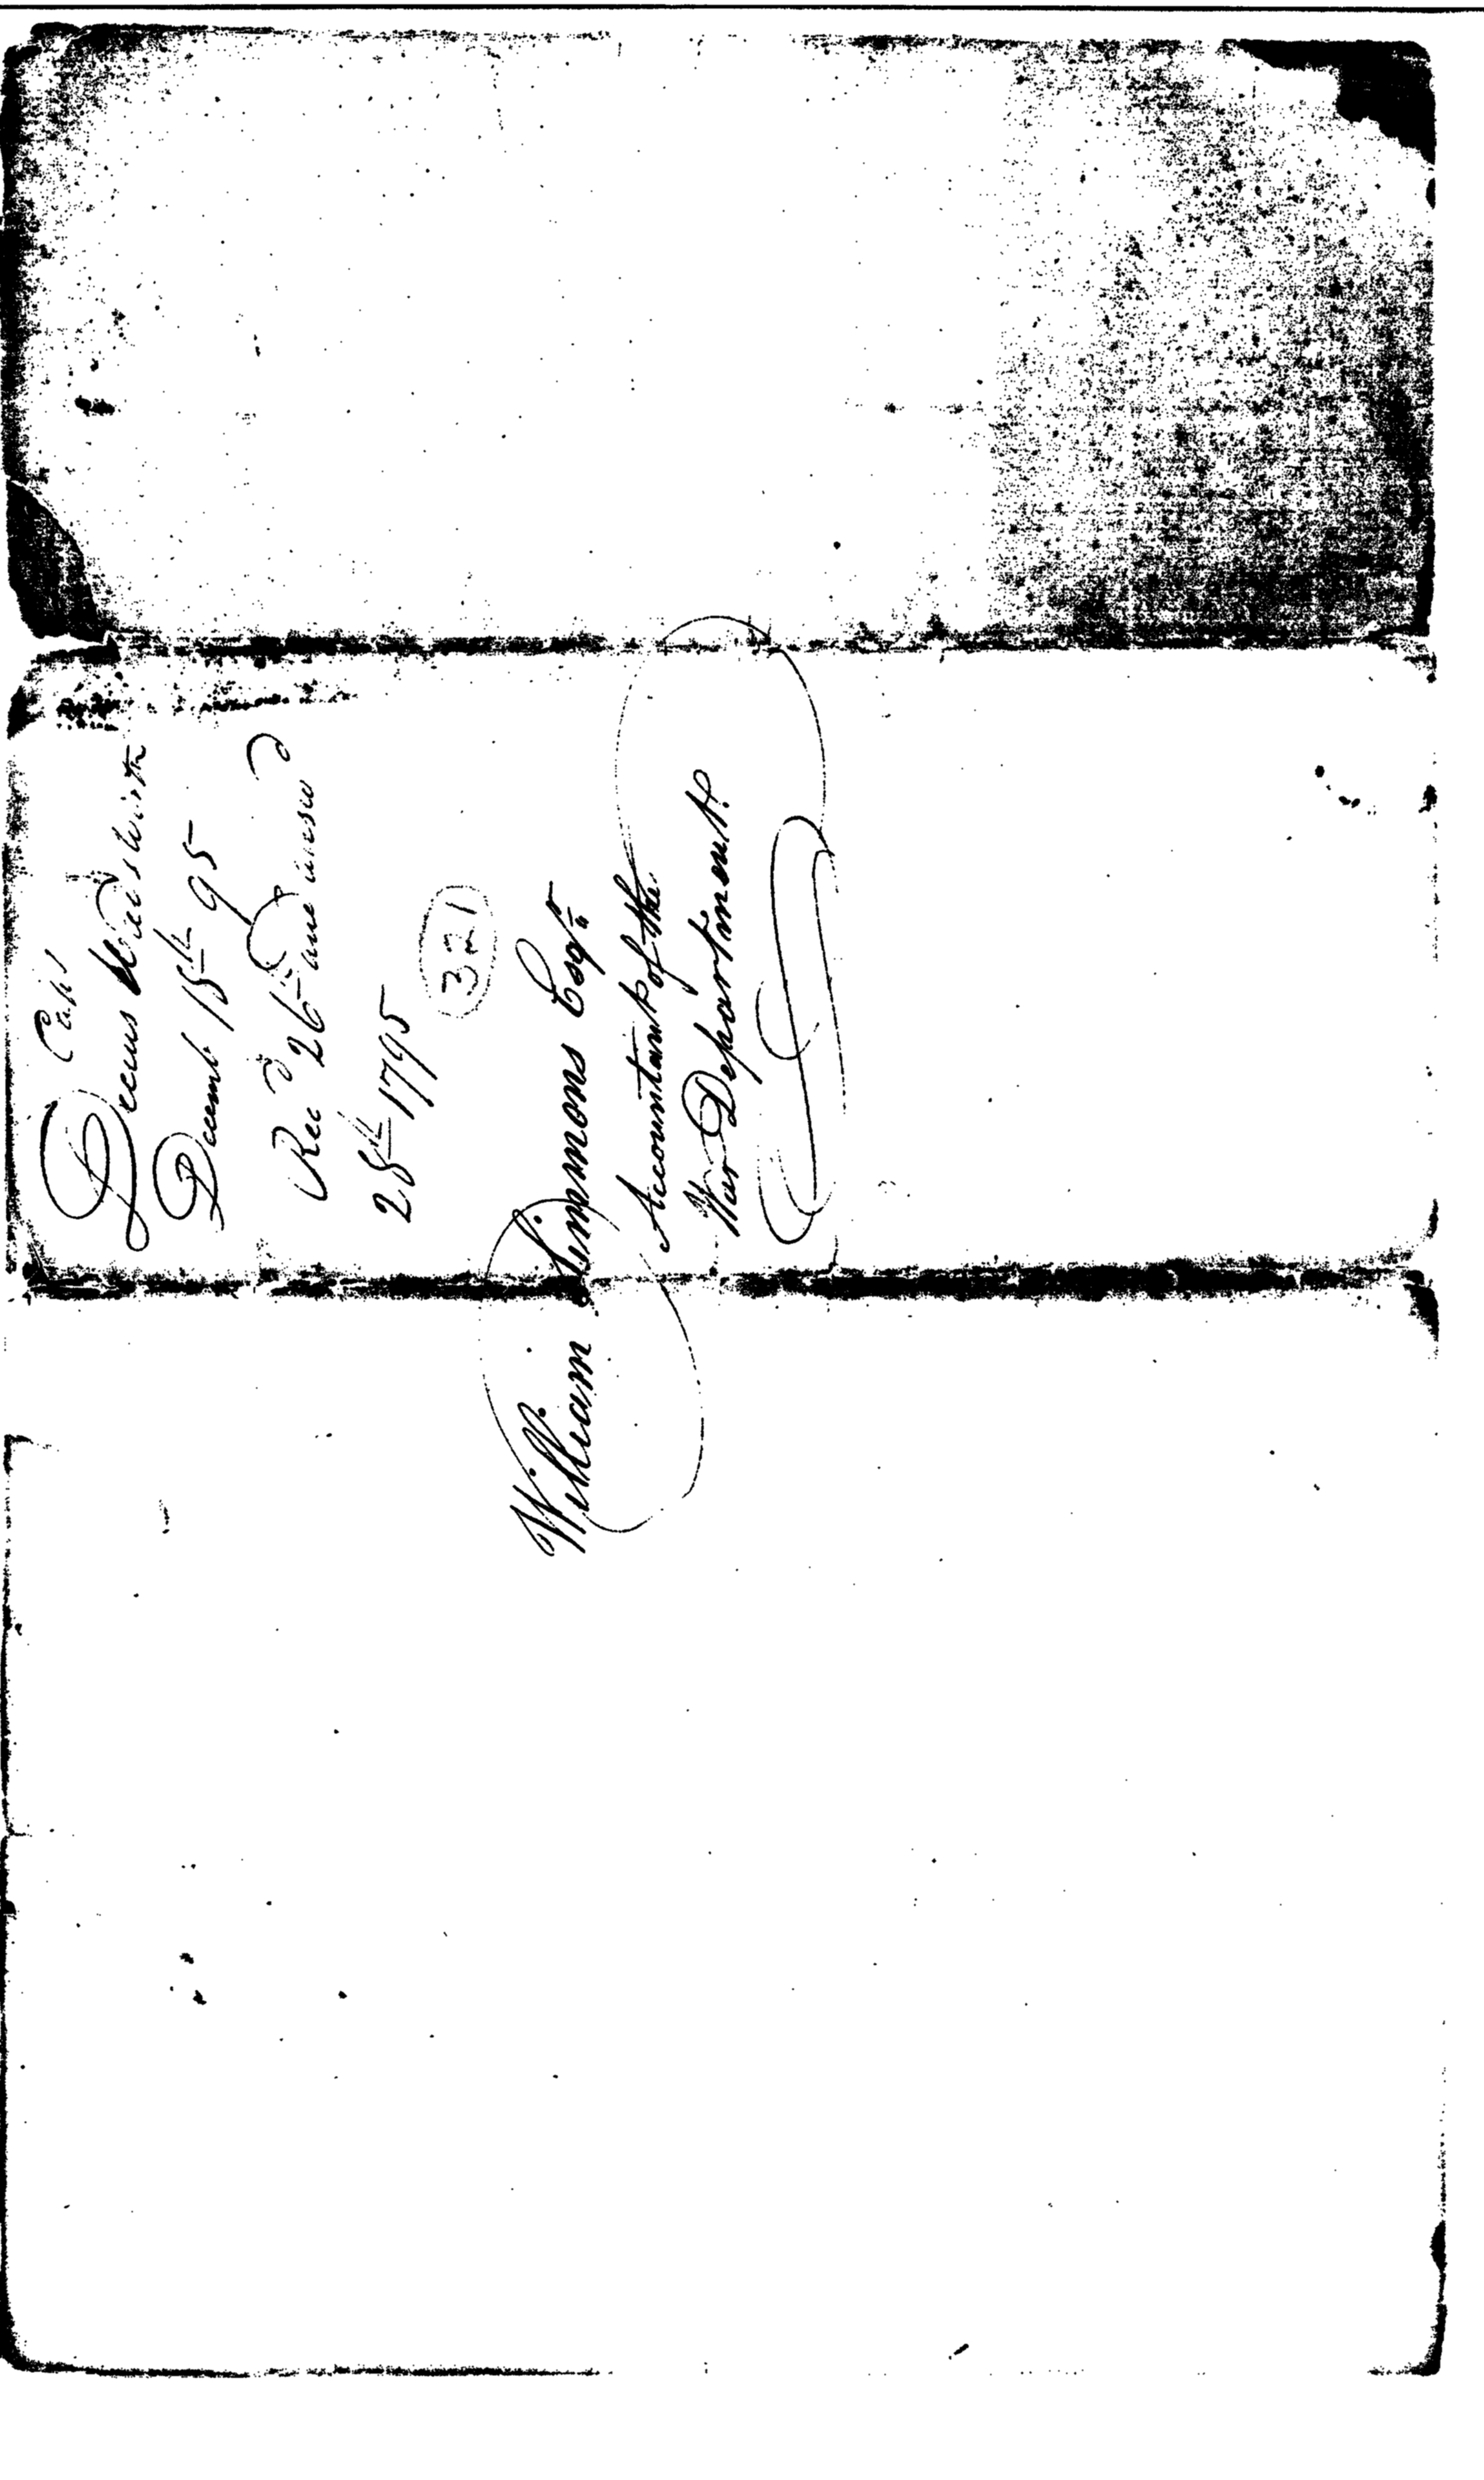 Capt
Decius Wadsworth
Decemb 15th 95
Recd 26th and answd
28th 1795
321
William Simmons Esqr.
Accountant of the
War Department.